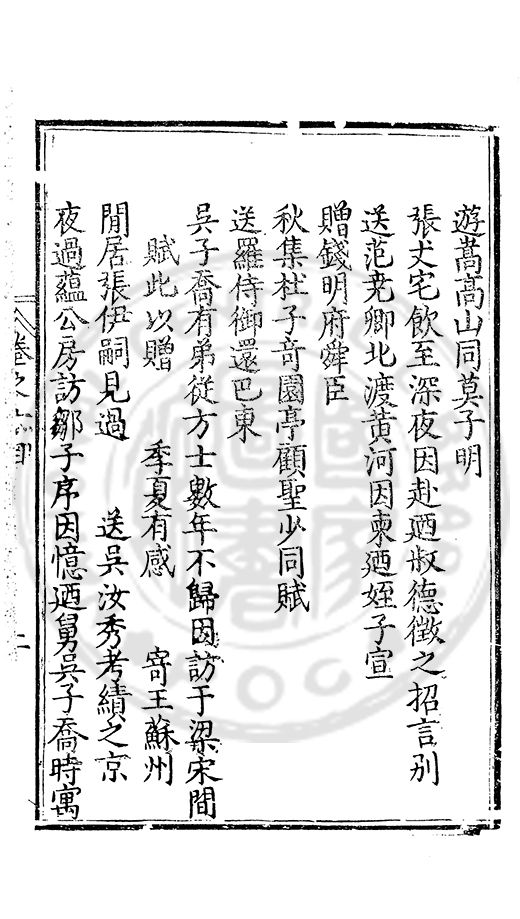 游嵩高山同莫子明
張丈宅飲至深夜因赴迺叔德徵之招言别
送范堯卿北渡黄河因柬迺姪子宣
贈錢明府舜臣
秋集杜子竒園亭顧聖少同賦
送羅侍御還巴東
吳子喬有弟従方士數年不歸因訪于梁宋間
賦此以贈　季夏有感　寄王蘇州
閒居張伊嗣見過　送吳汝秀考績之京
夜過蘊公房訪鄒子序因憶迺舅吳子喬時寓
卷之